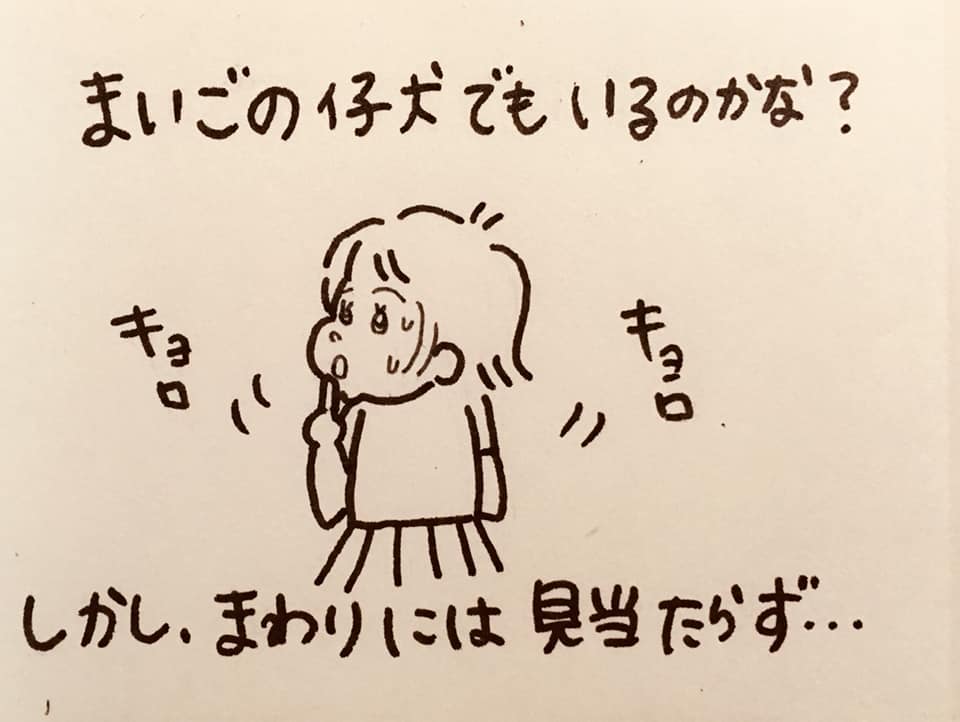 まいごの仔犬でもいるのかな?
キョロ
キョロ
しかし、まわりには見当たらず…